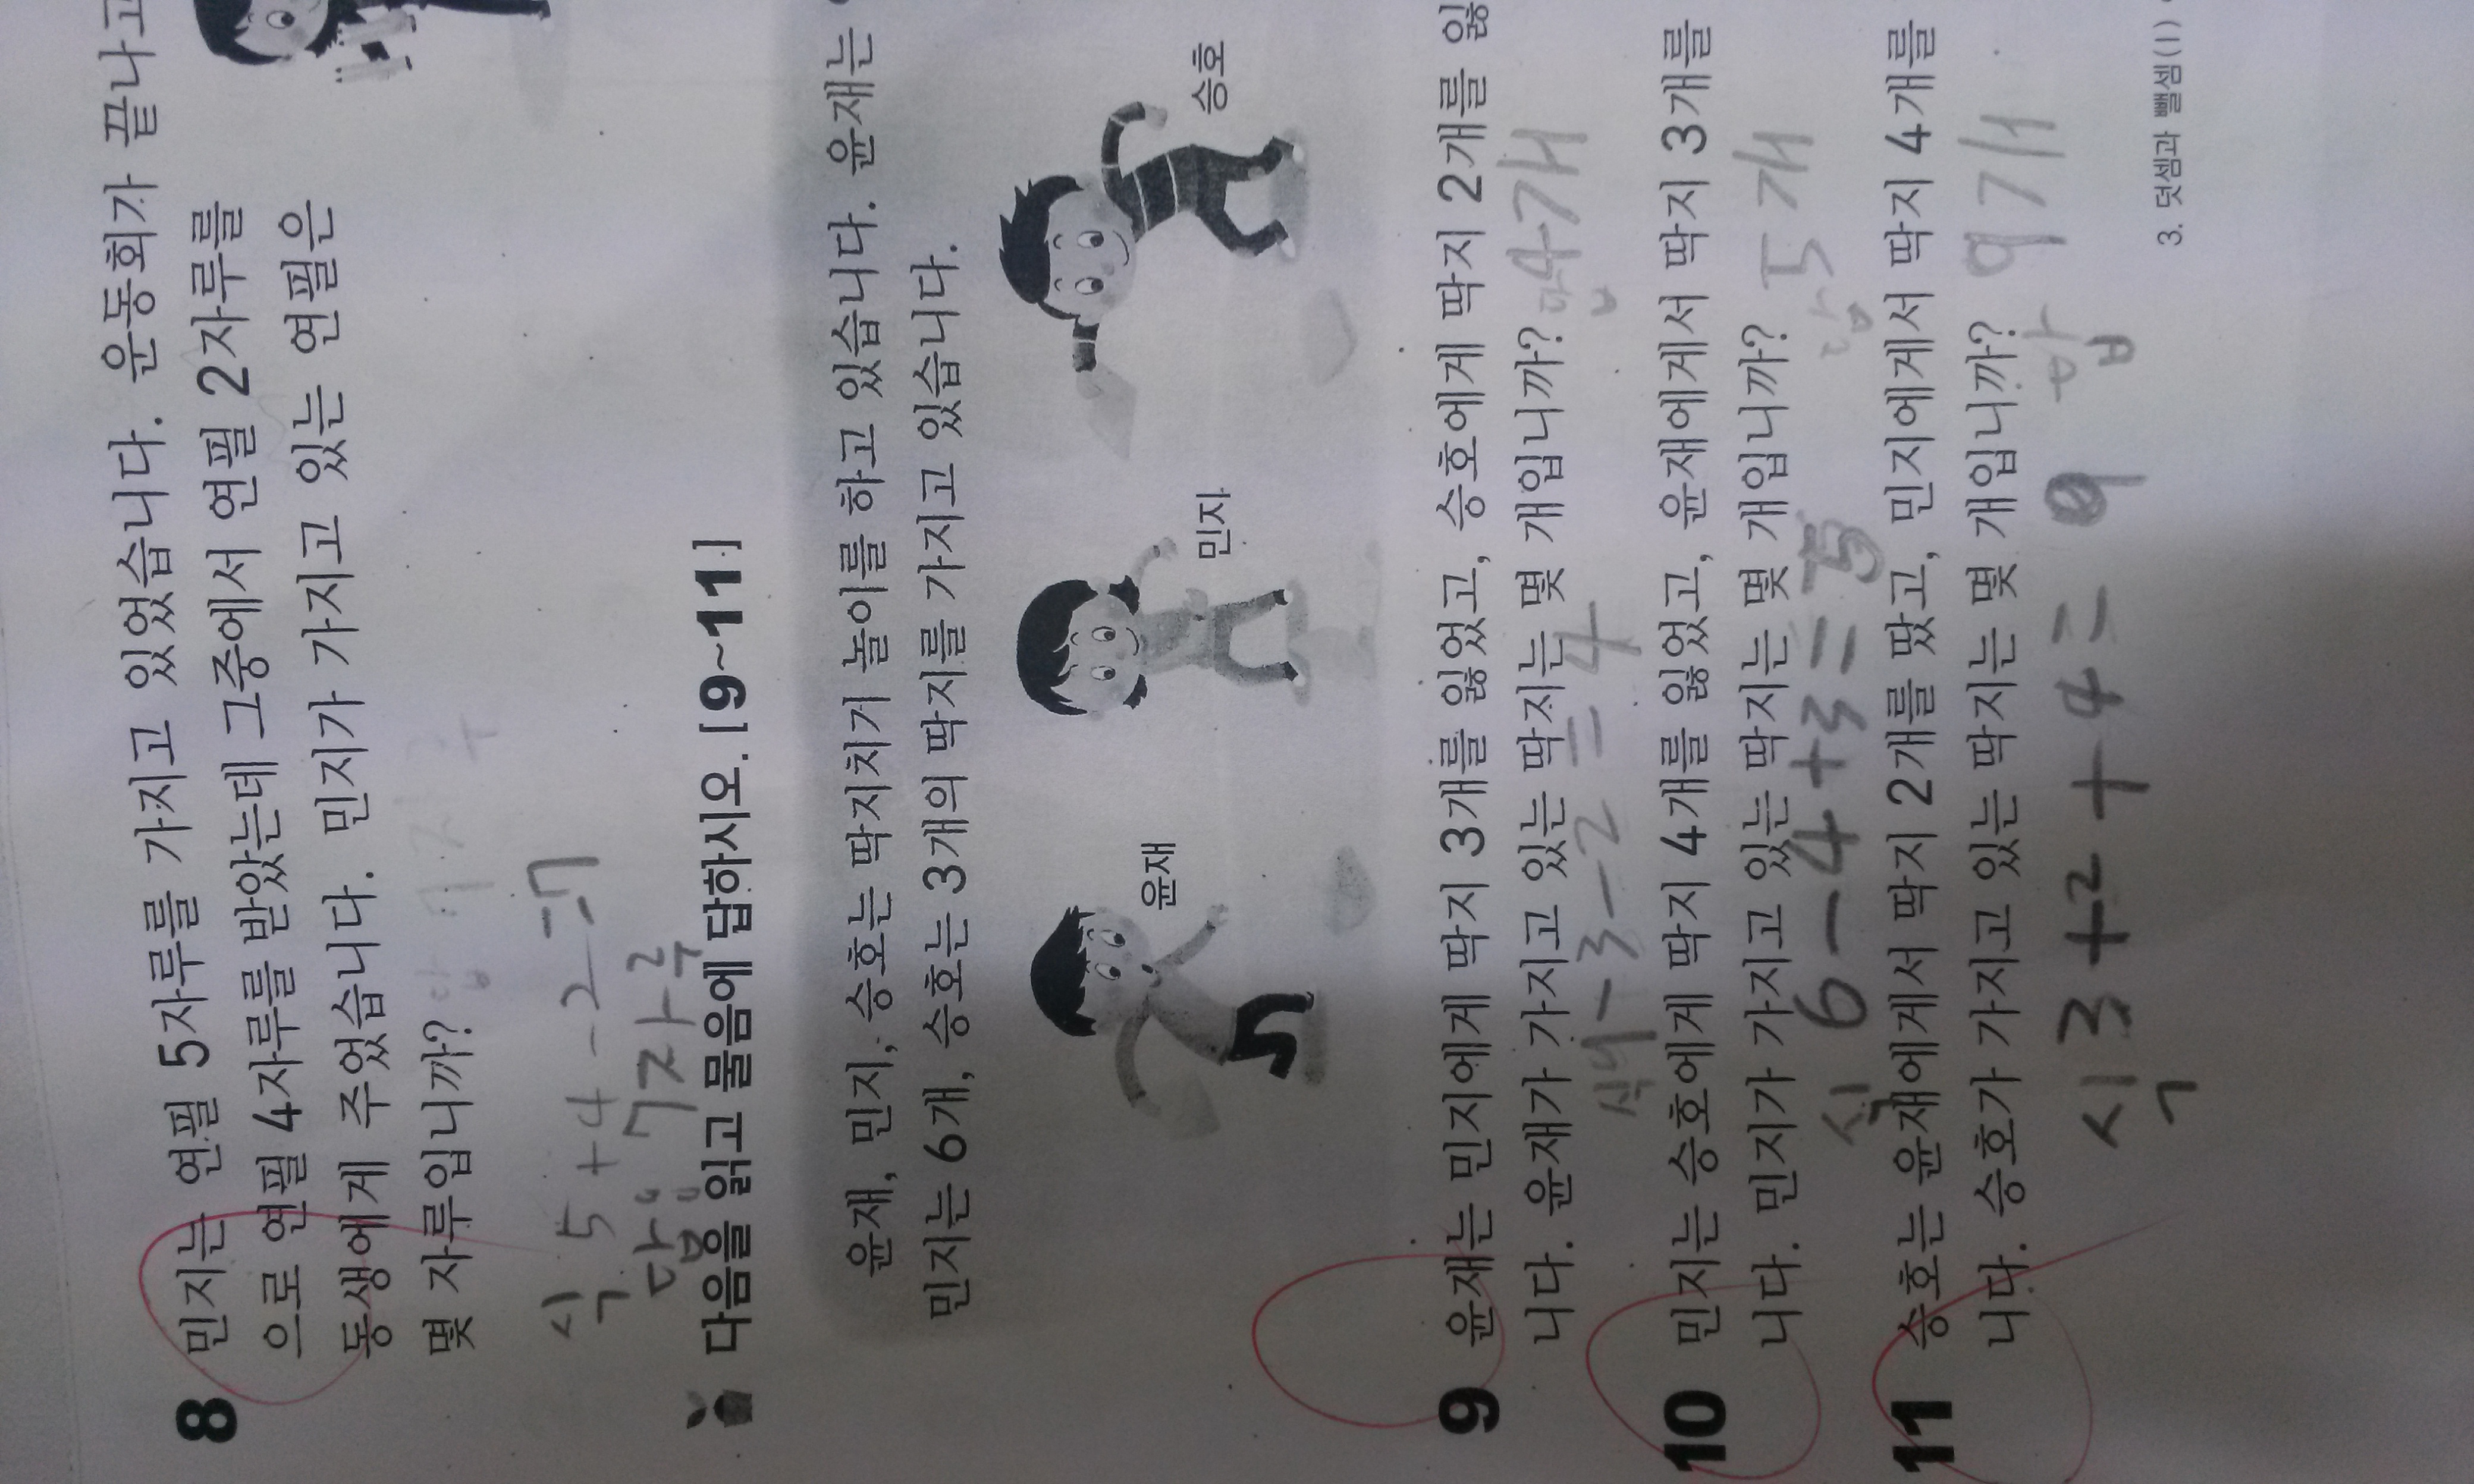 8 민지는 연필 5자루를 가지고 있었습니다. 운동회가 끝나고
으로 연필 4자루를 받았는데 그중에서 연필 2자루를
동생에게 주었습니다. 민지가 가지고 있는 연필은
몇 자루입니까?
식 5+4-2=7
답 7자루
다음을 읽고 물음에 답하시오. [9~11]
윤재, 민지, 승호는 딱지치기 놀이를 하고 있습니다. 윤재는
민지는 6개, 승호는 3개의 딱지를 가지고 있습니다.
윤재
민지
승호
9 윤재는 민지에게 딱지 3개를 잃었고, 승호에게 딱지 2개를 잃
니다. 윤재가 가지고 있는 딱지는 몇 개입니까? 답 4개
식 -3-2=4
10 민지는 승호에게 딱지 4개를 잃었고, 윤재에게서 딱지 3개를
니다. 민지가 가지고 있는 딱지는 몇 개입니까? 답 5개
식 6-4+3=5
11 승호는 윤재에게서 딱지 2개를 땄고, 민지에게서 딱지 4개를
니다. 승호가 가지고 있는 딱지는 몇 개입니까? 답 9개
식 3+2+4=9
3. 덧셈과 뺄셈(1)